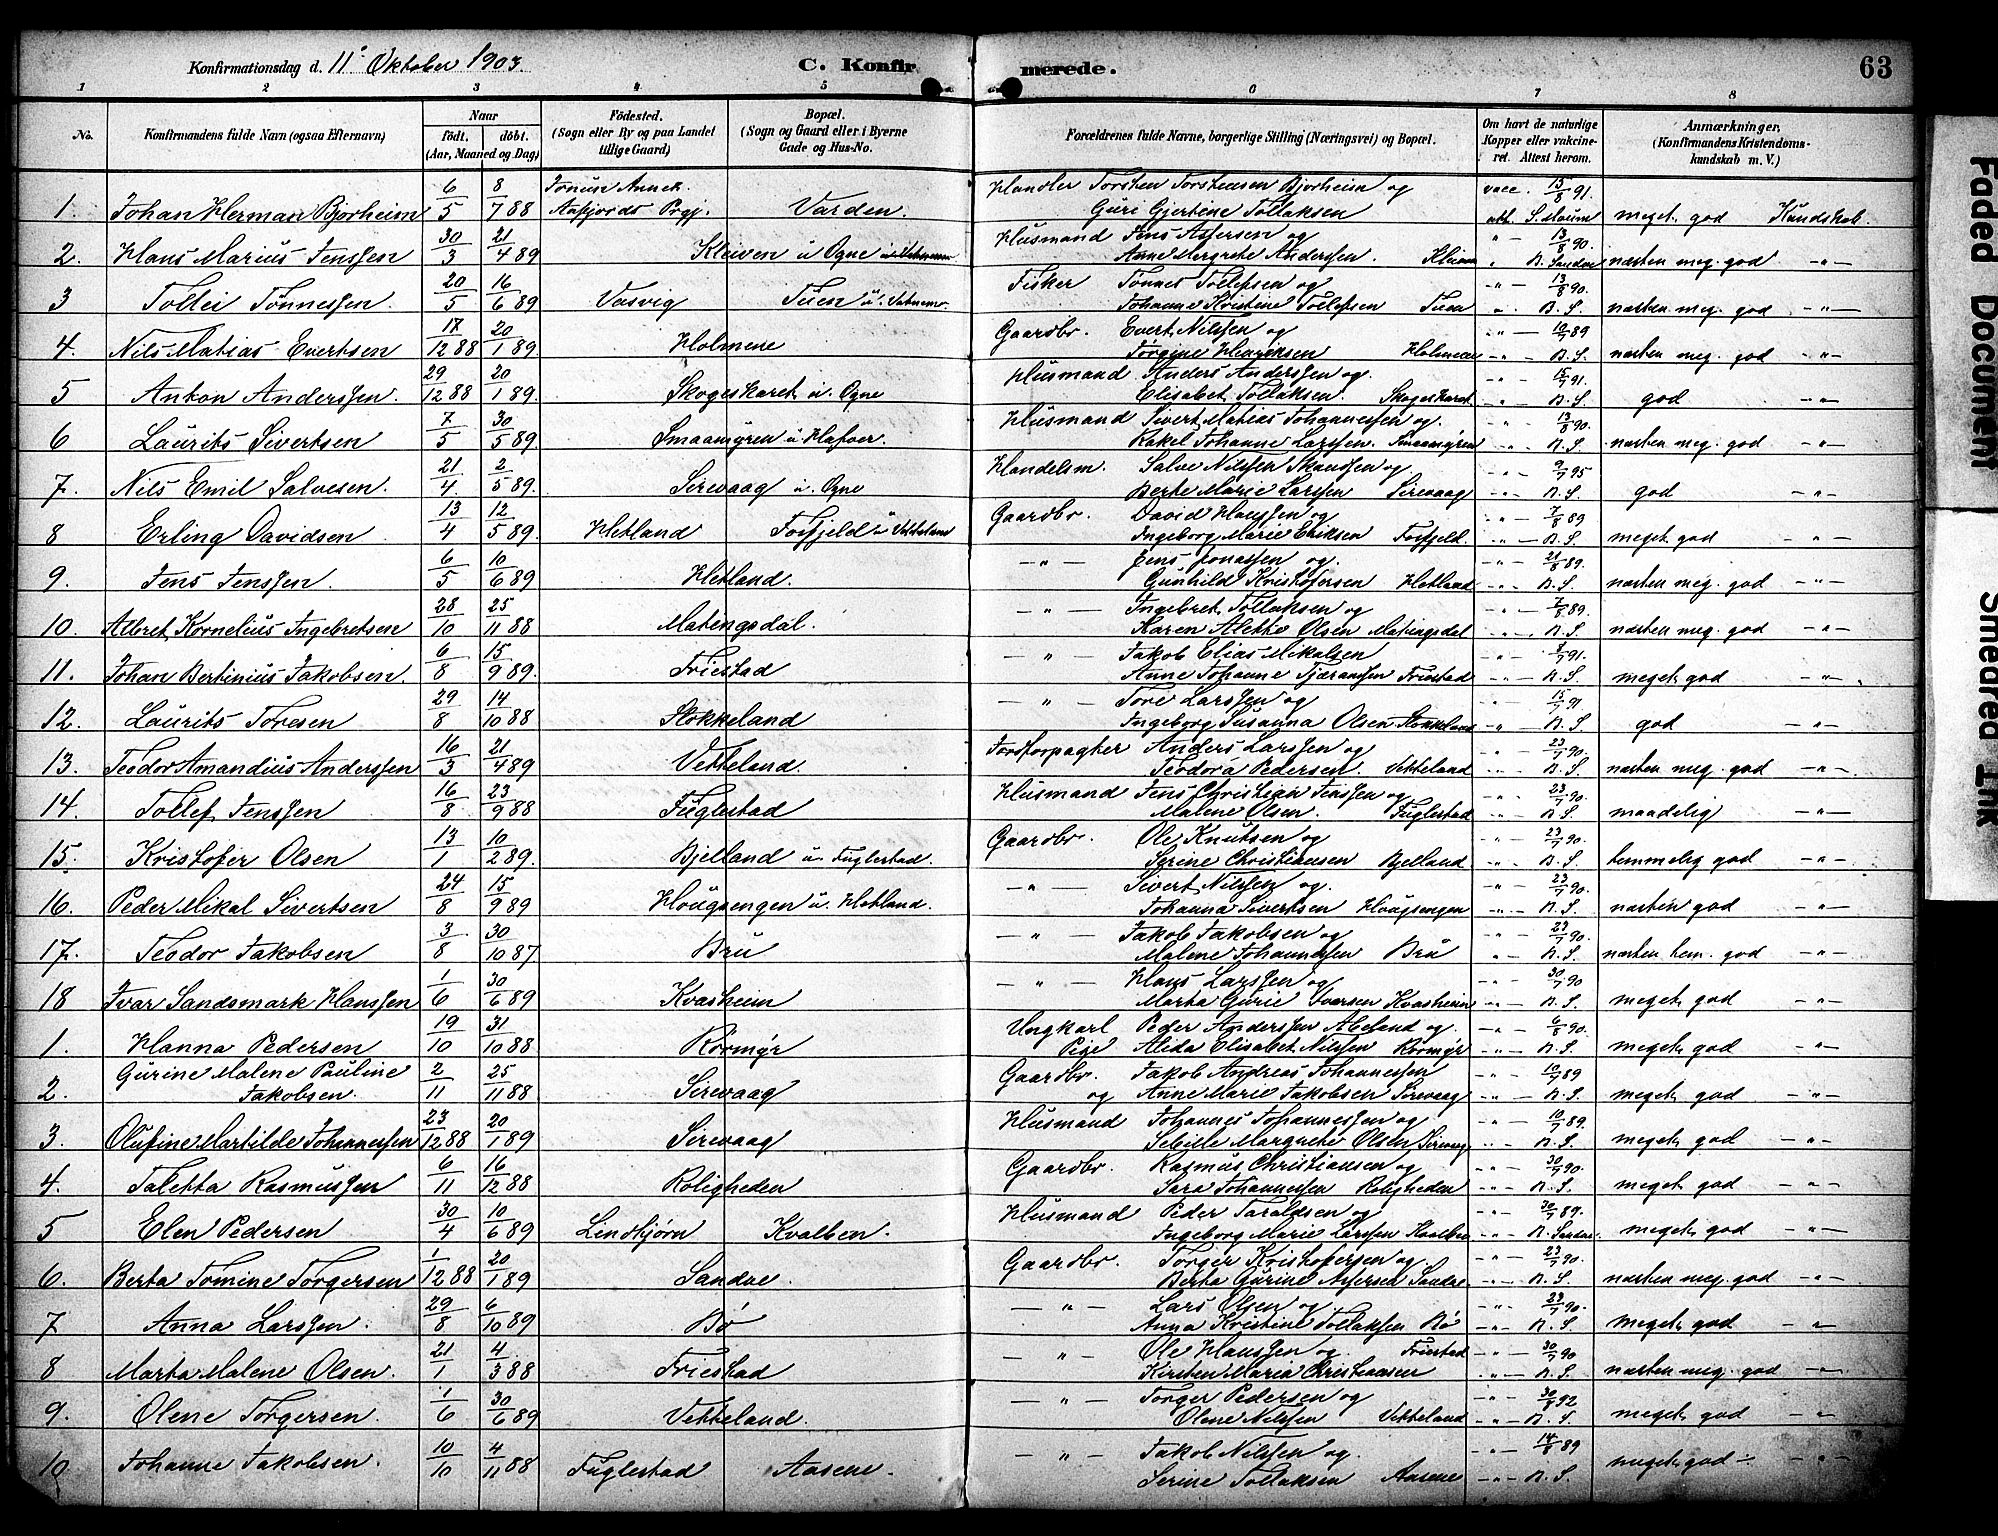 Konfirmationsdag d. 11te Oktober 1903. C. Konfirmerede. 63
1 2 3 4 5 6 7 8
No. Konfirmandens fulde Navn (ogsaa Efternavn) Naar født. døbt. (Aar, Maaned og Dag) Fødested. (Sogn eller By og paa Landet tillige Gaard) Bopæl. (Sogn og Gaard eller i Byerne Gade og Hus-No.) Forældrenes fulde Navne, borgerlige Stilling (Næringsvei) og Bopæl. Om havt de naturlige Kopper eller vakcineret. Attest herom. Anmærkninger, (Konfirmandens Kristendomskundskab m. V.)
1. Johan Herman Bjorheim 6/5 8/7 88 Aafjords Prgj. Varden. Handler Torsten Torstensen Bjorheim og Guri Gjertine Tollaksen vacc. 15/8 91. att. meget god Kundskab.
2. Hans Marius Jenssen 30/3 21/4 89 Kleiven u Ogne Husmand Jens Assersen og Anne Margrete Anderssen. Kleiven " 13/8 90. næsten meg. god -"-
3 Tollei Tønnessen. 20/5 16/6 89 Vasvig Tuen Fisker Tønnes Tollefsen og Johanne Kristine Tollefsen Tuen -"- 13/8 90. B. S. næsten meg. god -"-
4. Nils Matias Evertsen 17/12 88 20/1 89. Holmene Gaardbr. Evert Nilssen og Jørgine Henriksen Holmene -"- 10/7 89 B. S. næsten meg. god -"-
5 Anton Anderssen. 29/12 88 20/1 89. Skogeskaret u. Ogne Husmand Anders Anderssen og Elisabet Tollaksen. Skogeskaret -"- 15/7 91. B. S. god -"-
6 Laurits Sivertsen 7/5 30/5 89. Smaamyren u Hafver. Husmand Sivert Matias Johannessen og Rakel Johanne Larssen. Smaamyren -"- 13/8 90. B. S. næsten meg. god -"-
7. Nils Emil Salvesen. 21/4 2/5 89. Sirevaag u. Ogne Handelsm. Salve Nilssen Skaussen og Berte Marie Larssen Sirevaag -"- 9/7 95 B. S. god -"-
8 Erling Davidsen 13/4 12/5 89. Hetland Fosfjeld u Vetteland Gaardbr. David Hanssen og Ingeborg Marie Eriksen Fosfjeld. -"- 7/8 89 B. S. meget god -"-
9. Jens Jenssen. 6/5 10/6 89 Hetland. -"- Jens Jonassen og Gunhild Kristofersen Hetland -"- 21/8 89. B. S. næsten meg. god -"-
10. Albret Kornelius Ingebretsen 28/10 25/11 88 Matingsdal. -"- Ingebret Tollaksen og Karen Alette Olsen Matingsdal -"- 7/8 89. B. S. næsten meg. god -"-
11. Johan Bertinius Jakobsen. 6/8 15/9 89. Friestad -"- Jakob Elias Mikalsen Anne Johanne Tjæranssen Friestad -"- 91. B. S. meget god -"-
12. Laurits Toresen 29/8 14/10 88 Stokkeland -"- Tore Larssen og Ingeborg Susanna Olsen Stokkeland -"- 15/7 91 B. S. god -"-
13. Teodor Amandius Anderssen 16/3 21/4 89 Vetteland. Jordforpagter Anders Larssen og Teodora Pedersen. Vetteland -"- 23/7 90. B. S. næsten meg. god -"-
14. Tollef Jenssen 16/8 23/9 88 Fuglestad Husmand Jens Christian Jenssen og Malene Olsen. Fuglestad -"- 23/7 90. B. S. maadelig -"-
15. Kristofer Olsen 13/1 10/2 89. Bjelland u. Fuglestad. Gaardbr. Ole Knutsen og Serine Christiansen Bjelland -"- 23/7 90. B. S. temmelig god -"-
16. Peder Mikal Sivertsen 24/8 15/9 89 Hougsengen u. Hetland. -"- Sivert Nilssen og Johanna Sivertsen Hougsengen -"- 23/7 90. B. S. næsten god -"-
17. Teodor Jakobsen 3/8 30/10 87. Bru -"- Jakob Jakobsen og Malene Johannessen Bru -"- 23/7 90. B. S. næsten tem. god -"-
18 Ivar Sandsmark Hanssen 1/6 30/6 89 Kvasheim -"- Hans Larssen og Marta Gurie Iversen Kvasheim -"- 30/7 90 B. S. meget god -"-
1. Hanna Pedersen 19/10 31/10 88 Rørmyr Ungkarl Peder Anderssen Abeland og Pige Alida Elisabet Nilssen Rørmyr -"- 6/8 90. B. S. meget god -"-
2. Gurine Malene Pauline Jakobsen. 2/11 25/11 88 Sirevaag Gaardbr. Jakob Andreas Johannessen og Anne Marie Jakobsen Sirevaag -"- 10/7 89 B. S. meget god -"-
3. Olufine Martilde Johannessen 23/12 88 20/1 89 Sirevaag Husmand Johannes Johannessen og Sebille Margrete Olsen Sirevag -"- 10/7 89. B. S. meget god -"-
4. Taletta Rasmussen 6/11 16/12 88 Roligheden Gaardbr. Rasmus Christiansen og Sara Johannessen Roligheden -"- 30/7 90. B. S. meget god -"-
5 Elen Pedersen 30/4 10/6 89 Lindtjørn Kvalben. Husmand Peder Taraldsen og Ingeborg Marie Larssen Kvalben -"- 30/7 89. meget god -"-
6. Berta Tomine Torgersen 1/12 88 20/1 89 Sandve. Gaardbr. Torger Kristofersen og Berta Gurine Assersen Sandve. -"- 23/7 90. B. S. næsten meg. god -"-
7 Anna Larssen. 29/8 6/10 89 Bø -"- Lars Olsen og Anna Kristine Tollaksen Bø -"- 23/7 90. B. S. meget god -"-
8 Marta Malene Olsen. 21/1 4/3 88 Friestad -"- Ole Hanssen og Friestad Kirsten Maria Christiansen -"- 30/7 90 B. S. næsten meg. god -"-
9. Olene Torgersen. 1/6 30/6 89 Vetteland. -"- Torger Pedersen og Olene Nilssen Vetteland -"- 92 B. S. meget god -"-
10 Johanne Jakobsen. 10/10 4/11 88 Fuglestad Aasene. -"- Jakob Nilssen og Serine Tollaksen Aasene -"- 14/8 89 B. S. meget god -"-
Faded Document
Smeared Ink